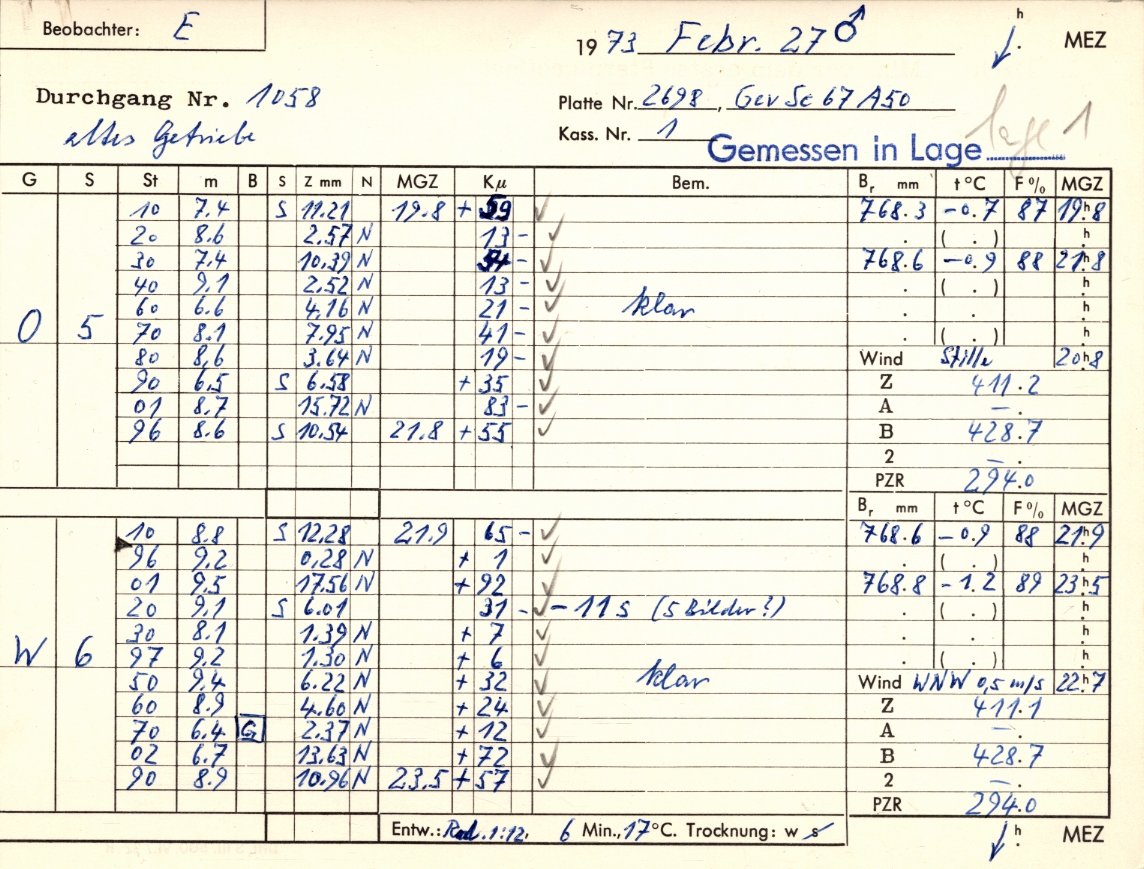 Beobachter: E
1973 Febr. 27 ♂
h
. MEZ
Durchgang Nr. 1058
Platte Nr. 2698, Gev Sc 67 A50
altes Getriebe
Kass. Nr. 1
Gemessen in Lage Lage 1
G S St m B S Z mm N MGZ Kμ Bem. Br mm t°C F% MGZ
10 7.4 S 11.21 19.8 + 59 768.3 -0.7 87 19h8
20 8.6 2.57 N 13 - . ( . ) h
30 7.4 10.39 N 54 - 768.6 -0.9 88 21h8
40 9.1 2.52 N 13 - . ( . ) h
60 6.6 4.16 N 21 - klar . h
O 5 70 8.1 7.95 N 41 - ( . ) h
80 8.6 3.64 N 19 - Wind Stille 20h8
90 6.5 S 6.58 + 35 Z 411.2
01 8.7 15.72 N 83 - A — .
96 8.6 S 10.54 21.8 + 55 B 428.7
2 — .
PZR 294.0
Br mm t°C F% MGZ
10 8.8 S 12.28 21.9 65 - 768.6 -0.9 88 21h9
96 9.2 0.28 N + 1 . ( . ) h
01 9.5 17.56 N + 92 768.8 -1.2 89 23h5
20 9.1 S 6.01 31 - - 11 s (5 Bilder?) . ( . ) h
30 8.1 1.39 N + 7 . . h
W 6 97 9.2 1.30 N + 6 . ( . ) h
50 9.4 6.22 N + 32 klar Wind WNW 0,5 m/s 22h7
60 8.9 4.60 N + 24 Z 411.1
70 6.4 G 2.37 N + 12 A — .
02 6.7 13.63 N + 72 B 428.7
90 8.9 10.96 N 23.5 + 57 2 — .
PZR 294.0
Entw.: Rod. 1:12. 6 Min., 17°C. Trocknung: w s
h
. MEZ